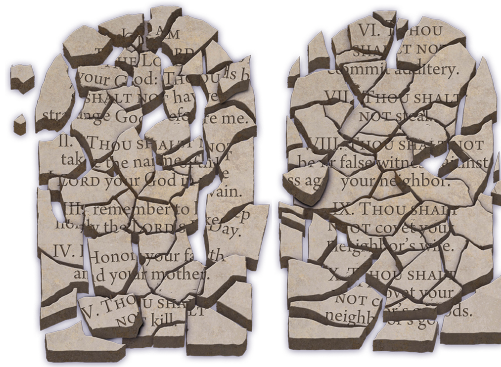 I AM
THE LORD
your God: THOU
SHALT NOT have
strange Gods before me.
II. THOU SHALT NOT
take the name
LORD your God in
vain.
III. remember to keep
holy the LORD'S Day.
IV. Honor your
and your mother.
V. THOU SHALT
NOT kill
VI. THOU
SHALT NOT
commit adultery.
VII. THOU SHALT
NOT steal.
VIII. THOU SHALT NOT
bear false witness against
your neighbor.
IX. THOU SHALT
NOT covet your
Neighbor's wife.
X. THOU SHALT
NOT covet your
neighbor's goods.